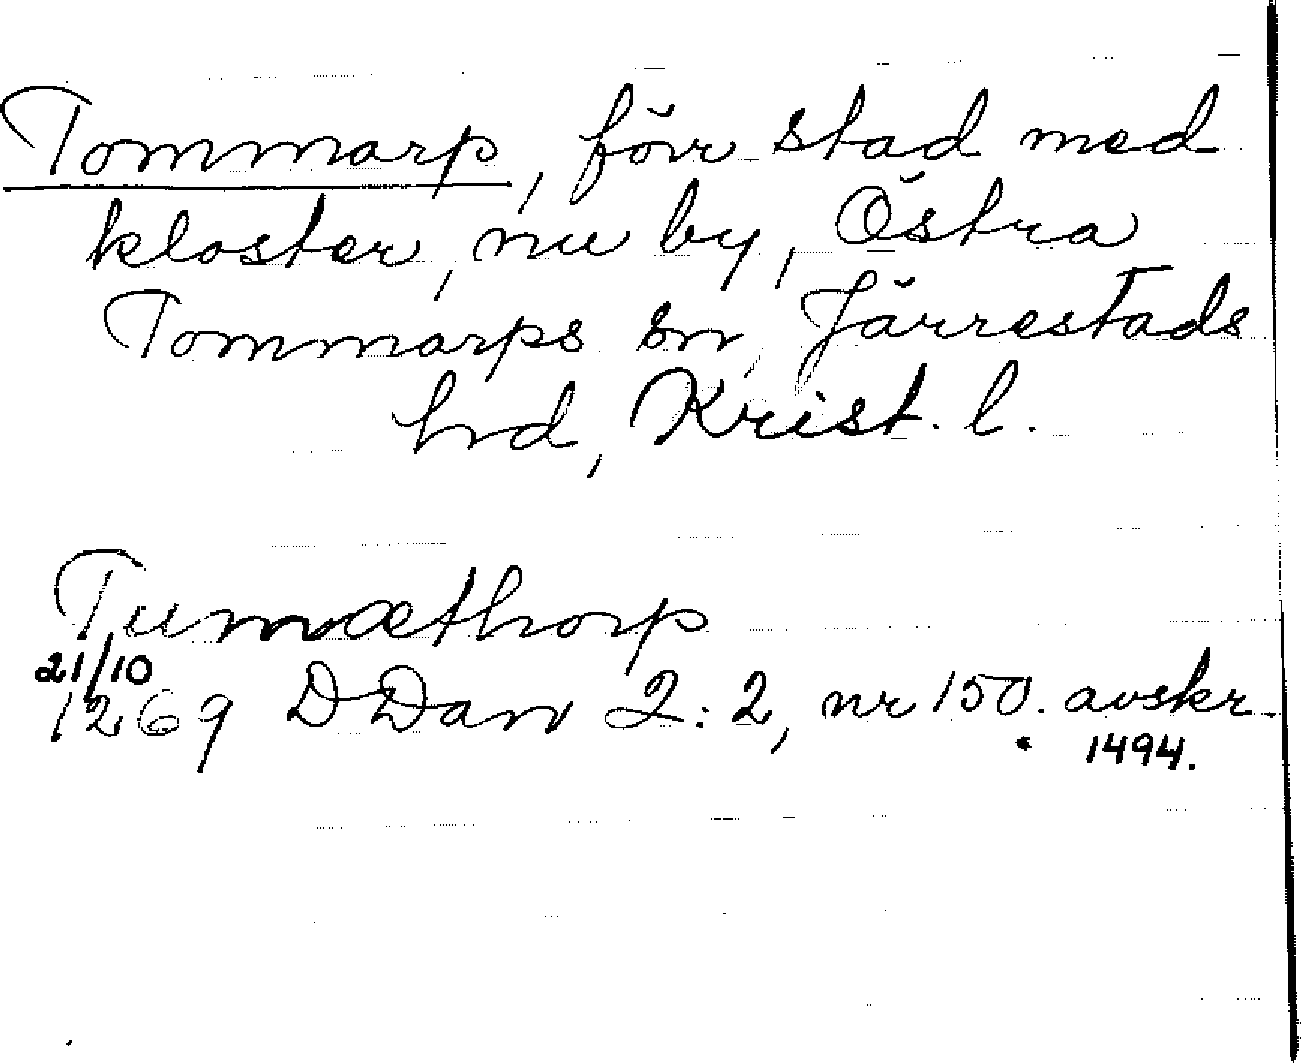 Tommarp, förr stad med
kloster, nu by, Östra
Tommarps sn, Järrestads
hd, Krist. l.
Tumæthorp
21/10
1269 DDan 2:2, nr 150. avskr.
1494.